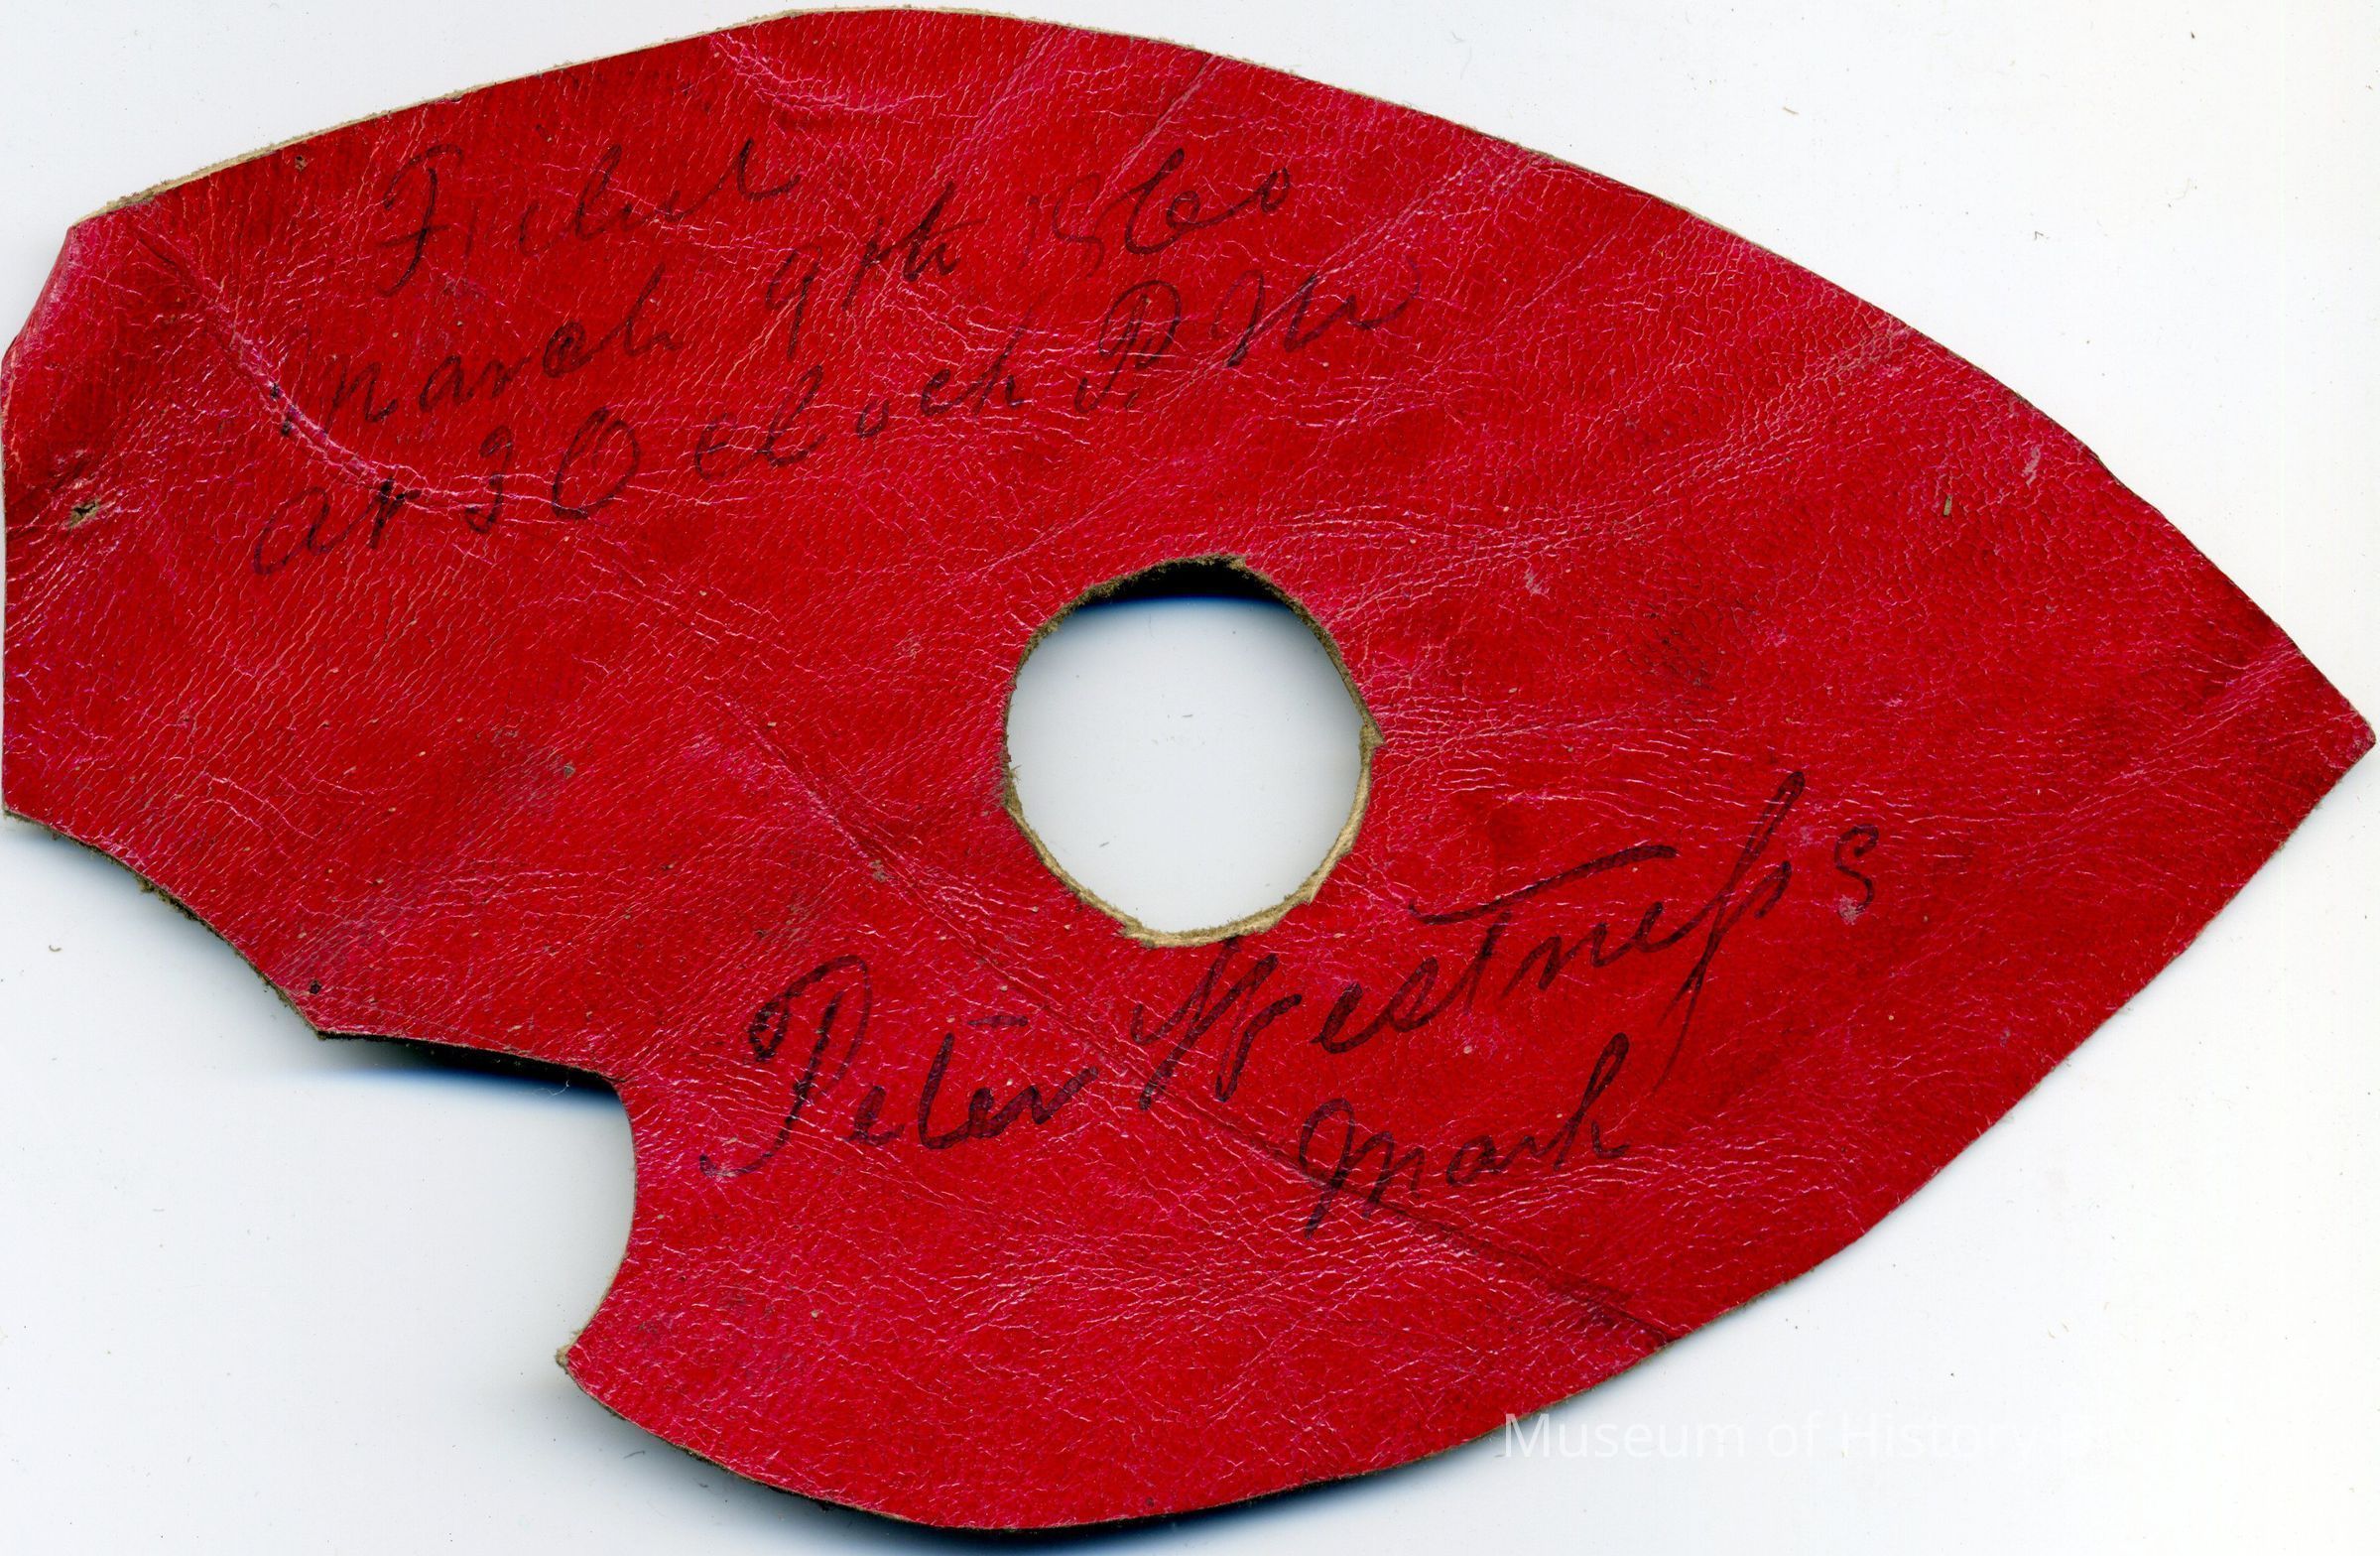 Filed
March 9th 1860
at 3 O clock P M
Peter Westness
Mark
Museum of History